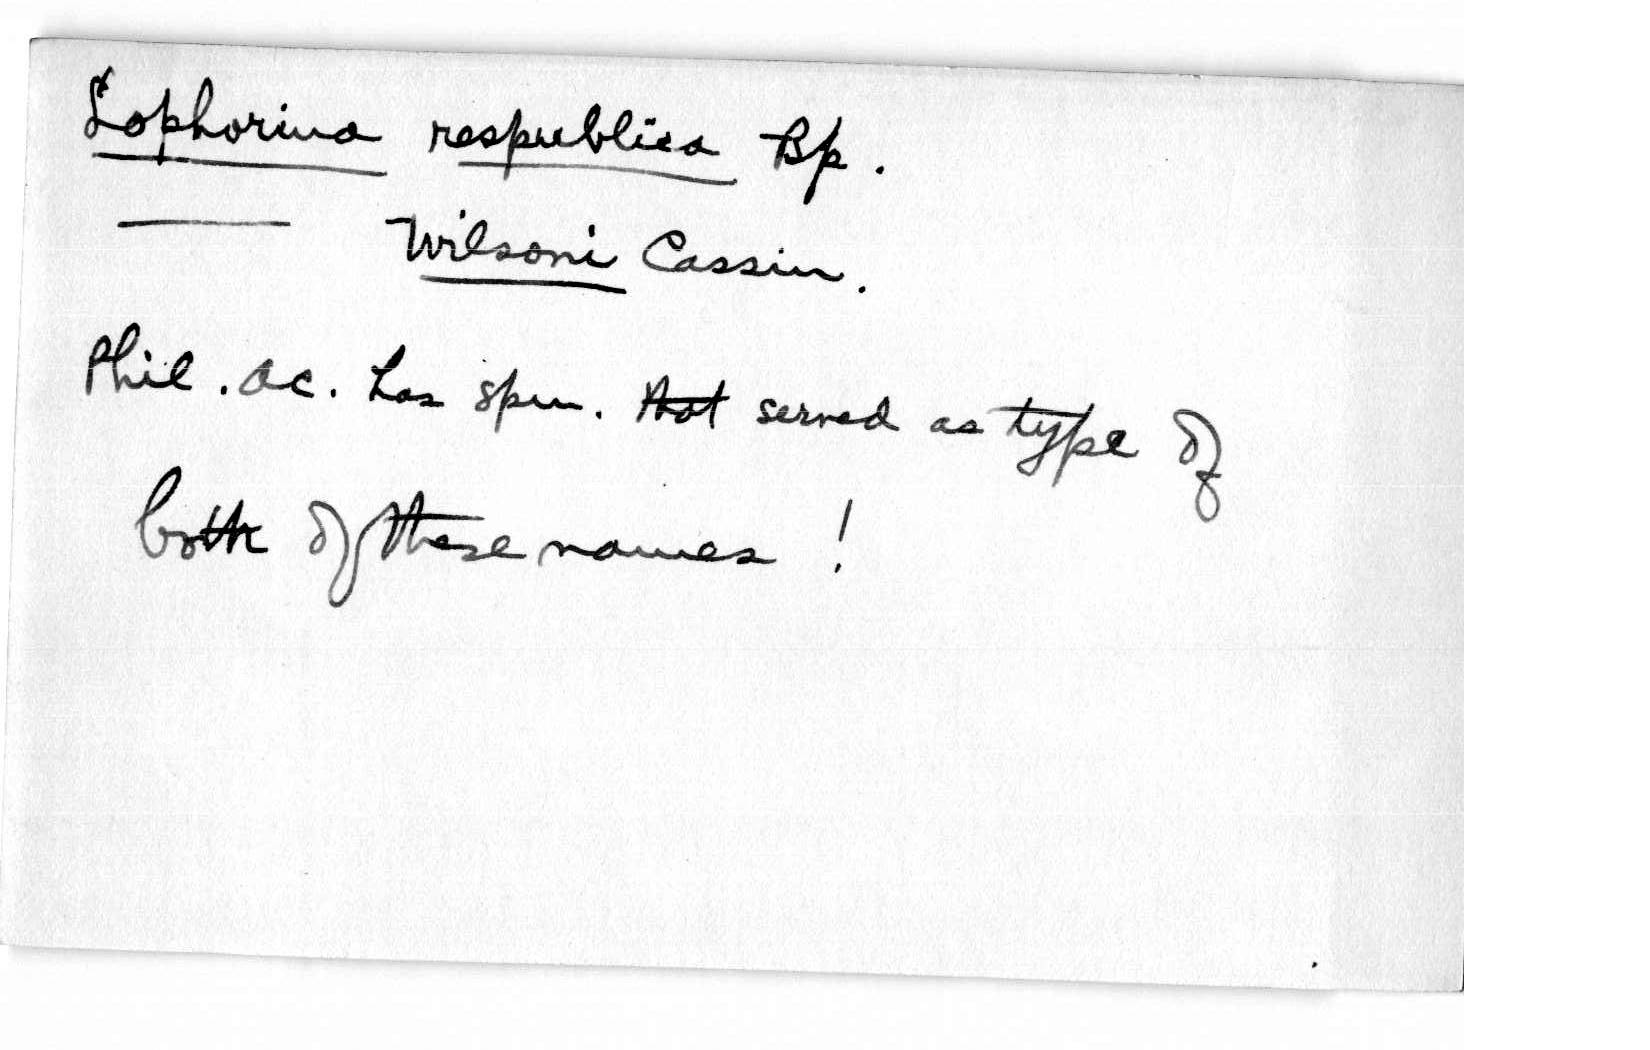 Lophorina respublica Bp.
—— Wilsoni Cassin.
Phil. Ac. has spm. that served as type of
both of these names!